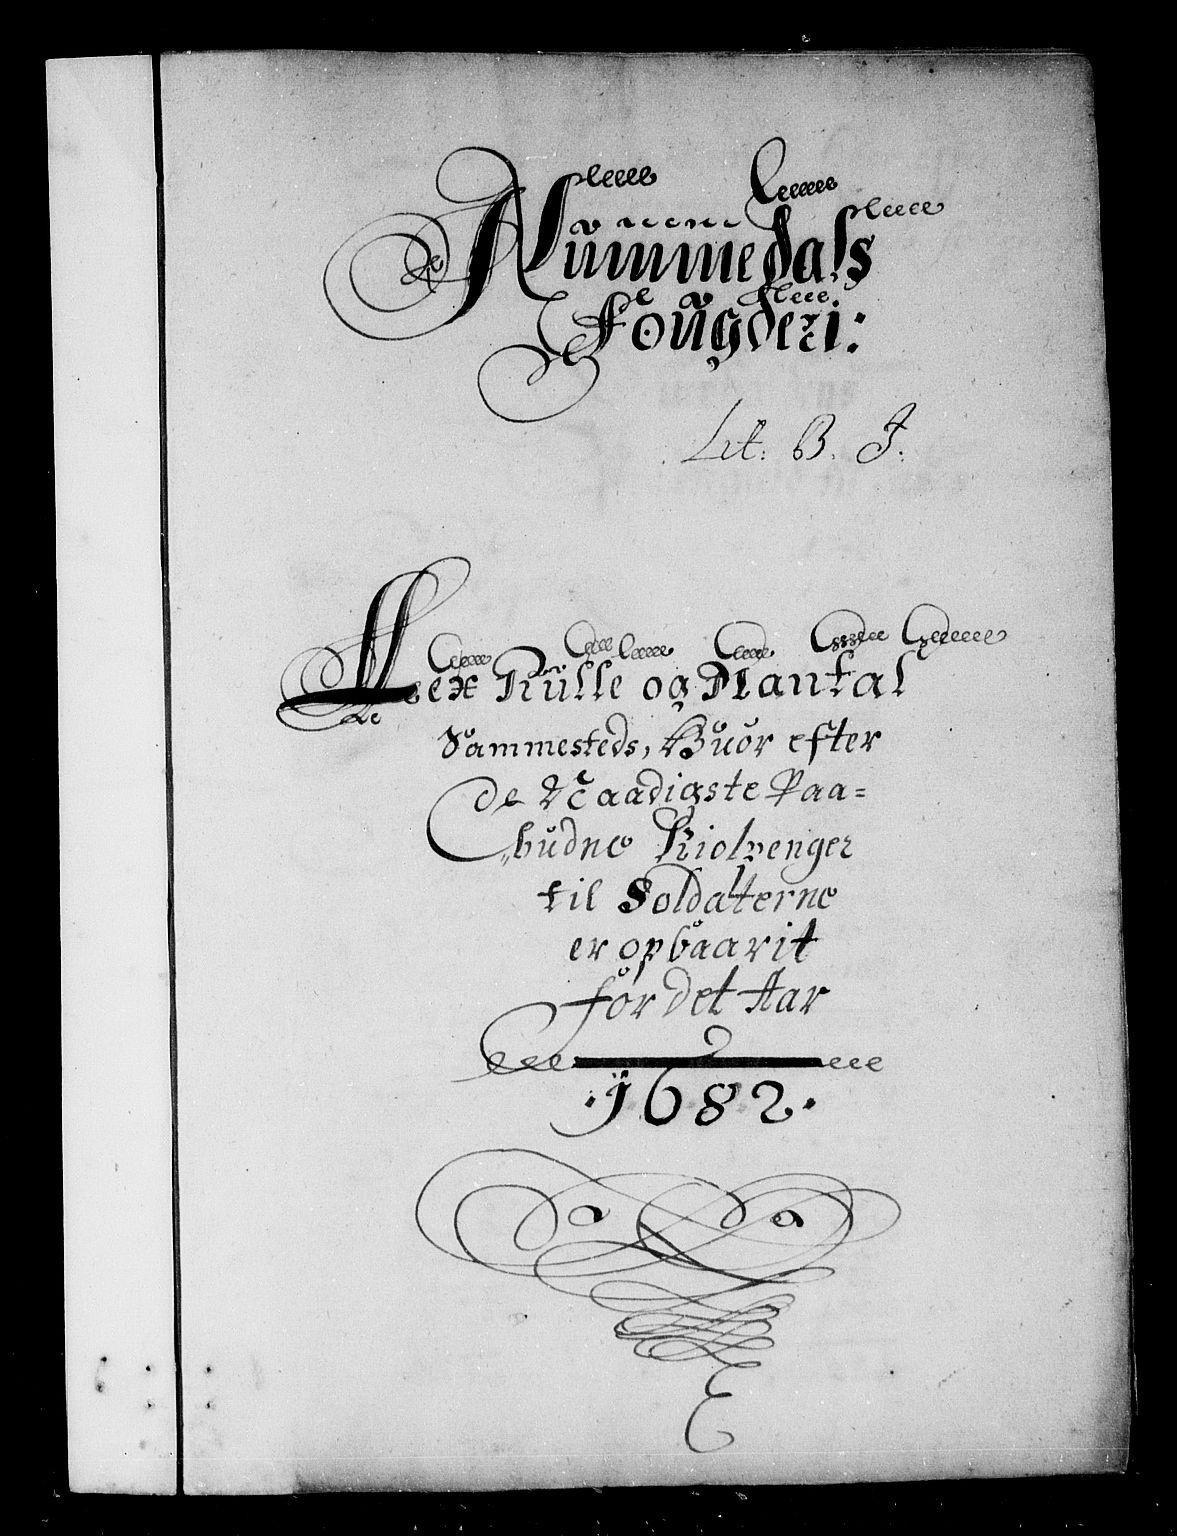 Nummedals
Fougderi:
Lit. B. J.
Lex Rulle og Mantal
Sammesteds, Huor efter
de Naadigste Paa=
budne Kiolpenger
til Soldaterne
er opbaarit
for det Aar
1682.